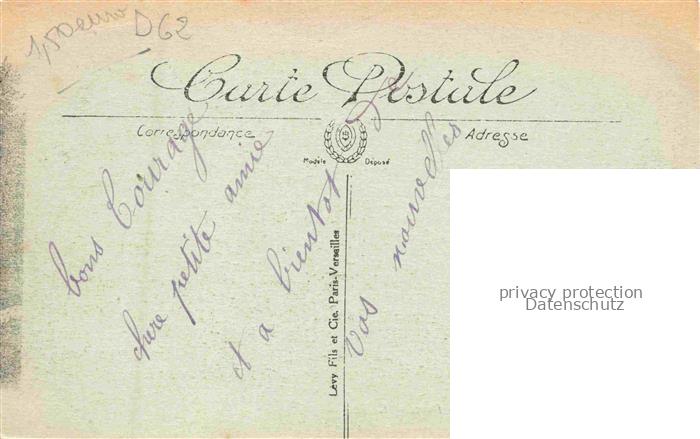 1,50 euro D62
Carte Postale
Correspondance
Adresse
Modèle Déposé
bons Courage
chere petite amie
et a bientot
de
vos nouvelles
Lévy Fils et Cie, Paris-Versailles
privacy protection
Datenschutz